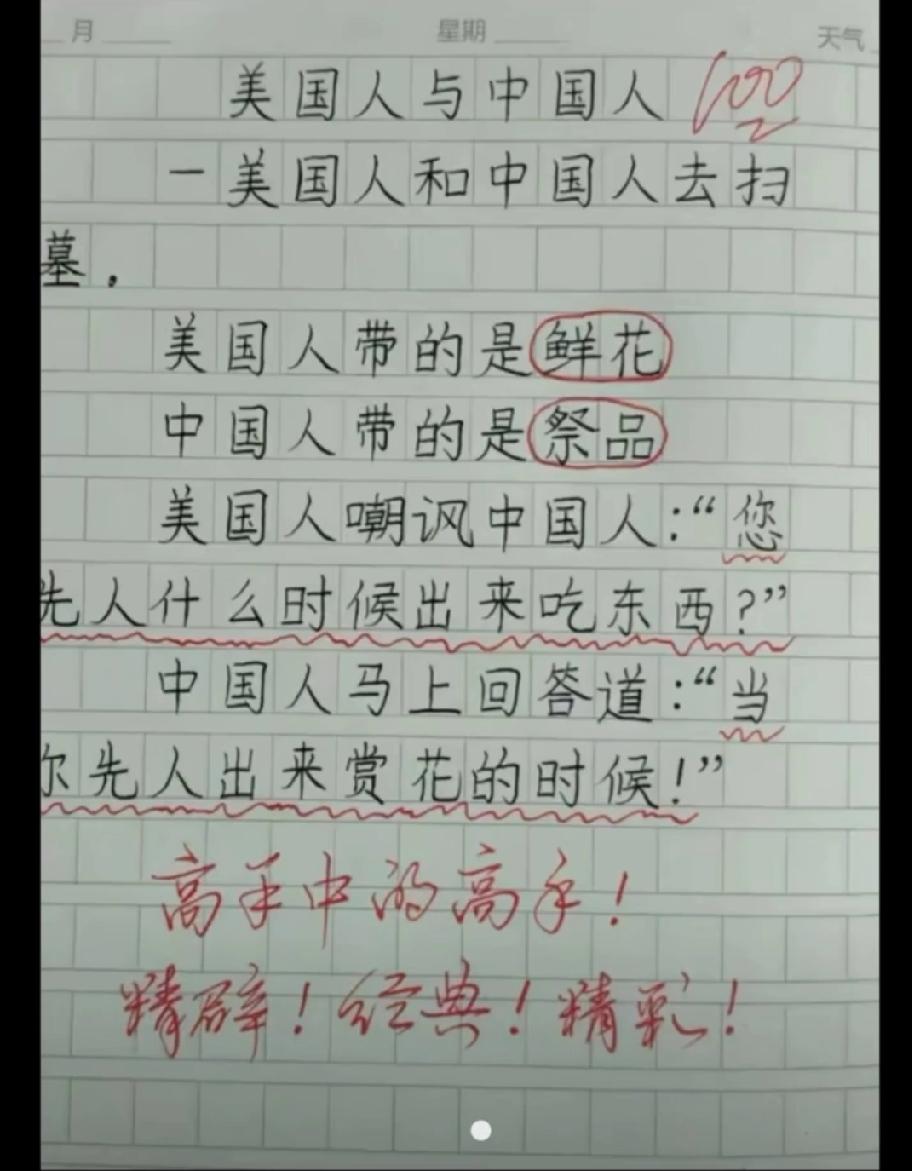 月 星期 天气
美国人与中国人 100
一美国人和中国人去扫
墓.
美国人带的是鲜花
中国人带的是祭品
美国人嘲讽中国人:“您
先人什么时候出来吃东西?”
中国人马上回答道:“当
你先人出来赏花的时候!”
高手中的高手!
精辟!经典!精彩!